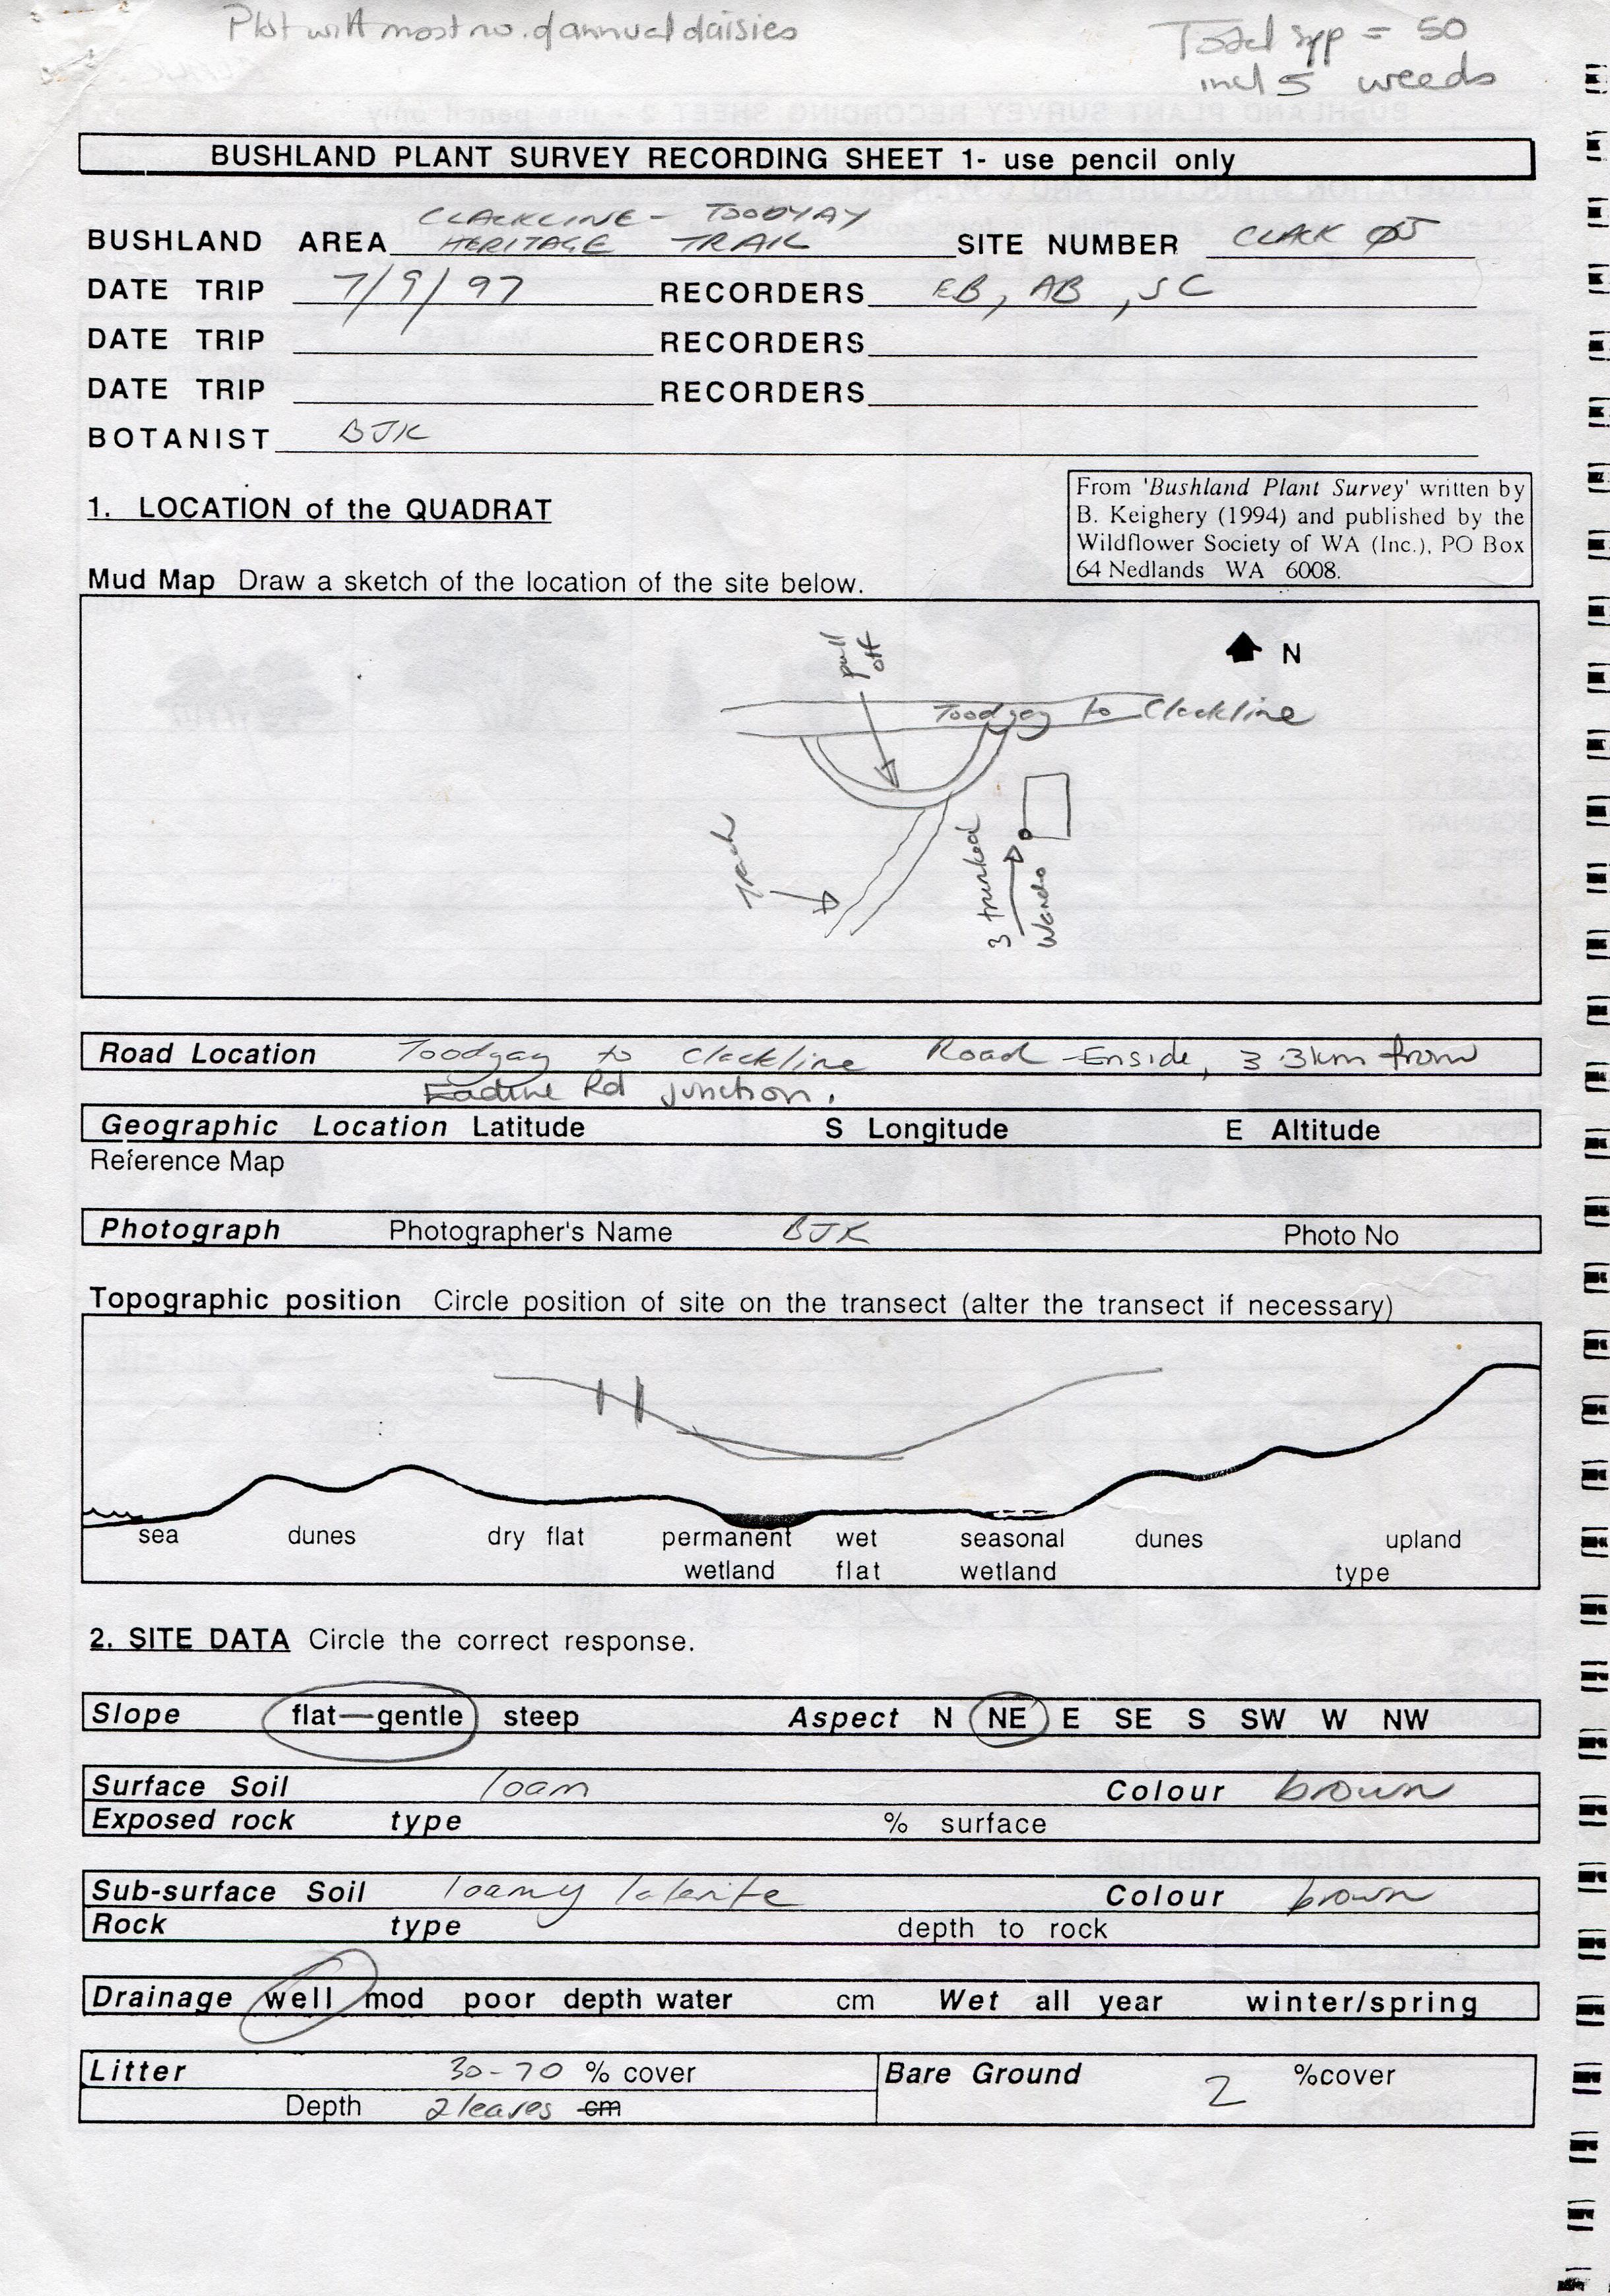 Plot with most no. of annual daisies
Total spp = 50
incl 5 weeds
BUSHLAND PLANT SURVEY RECORDING SHEET 1- use pencil only
CLACKLINE - TOODYAY
BUSHLAND AREA HERITAGE TRAIL SITE NUMBER CLACK Ø5
DATE TRIP 7/9/97 RECORDERS EB, AB, SC
DATE TRIP RECORDERS
DATE TRIP RECORDERS
BOTANIST BJK
From 'Bushland Plant Survey' written by
B. Keighery (1994) and published by the
Wildflower Society of WA (Inc.), PO Box
64 Nedlands WA 6008.
1. LOCATION of the QUADRAT
Mud Map Draw a sketch of the location of the site below.
pull
off
N
Toodyay to Clackline
Track
3 trunked
Wandoo
Road Location Toodyay to Clackline Road - E nside, 3.3km from
Eadine Rd junction.
Geographic Location Latitude S Longitude E Altitude
Reference Map
Photograph Photographer's Name BJK Photo No
Topographic position Circle position of site on the transect (alter the transect if necessary)
sea dunes dry flat permanent wet seasonal dunes upland
wetland flat wetland type
2. SITE DATA Circle the correct response.
Slope flat—gentle steep Aspect N NE E SE S SW W NW
Surface Soil loam Colour brown
Exposed rock type % surface
Sub-surface Soil loamy laterite Colour brown
Rock type depth to rock
Drainage well mod poor depth water cm Wet all year winter/spring
Litter 30-70 % cover Bare Ground 2 %cover
Depth 2 leaves cm